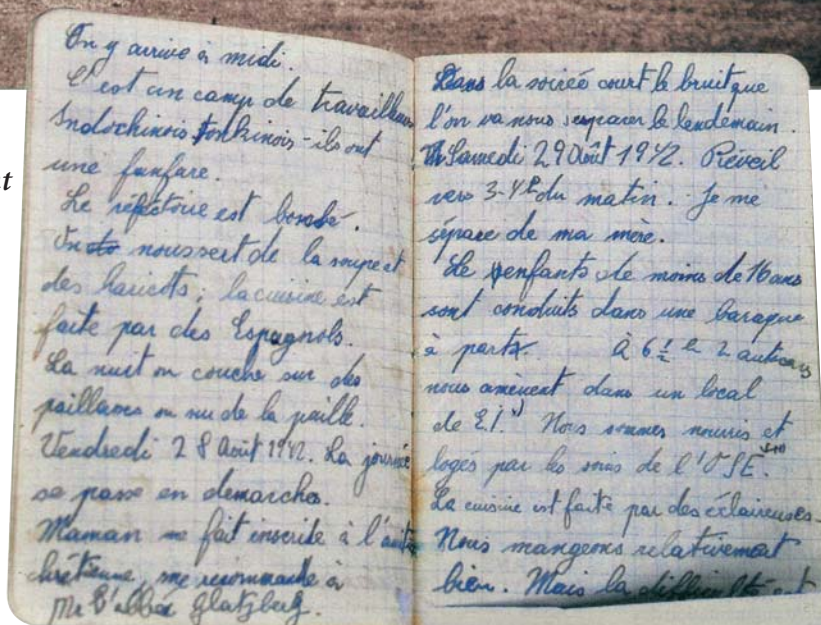 nt
On y arrive à midi.
C'est un camp de travailleurs
Indochinois Tonkinois - ils ont
une fanfare.
Le réfectoire est bombé.
On nous sert de la soupe et
des haricots ; la cuisine est
faite par des Espagnols.
La nuit on couche sur des
paillasses ou sur de la paille.
Vendredi 28 Août 1942. La journée
se passe en demarches.
Maman me fait inscrire à l'amitié
chrétienne, me recommande à
Mr l'abbé Glatzberg.
Dans la soireé court le bruit que
l'on va nous separer le lendemain.
Samedi 29 Août 1942. Réveil
vers 3-4h du matin. Je me
sépare de ma mère.
Les enfants de moins de 16 ans
sont conduits dans une baraque
à part. à 6 ½ h 2 autocars
nous amènent dans un local
de E.I. Nous sommes nourris et
logés par les soins de l'OSE.
La cuisine est faite par des éclaireuses.
Nous mangeons relativement
bien. Mais la difficulté est